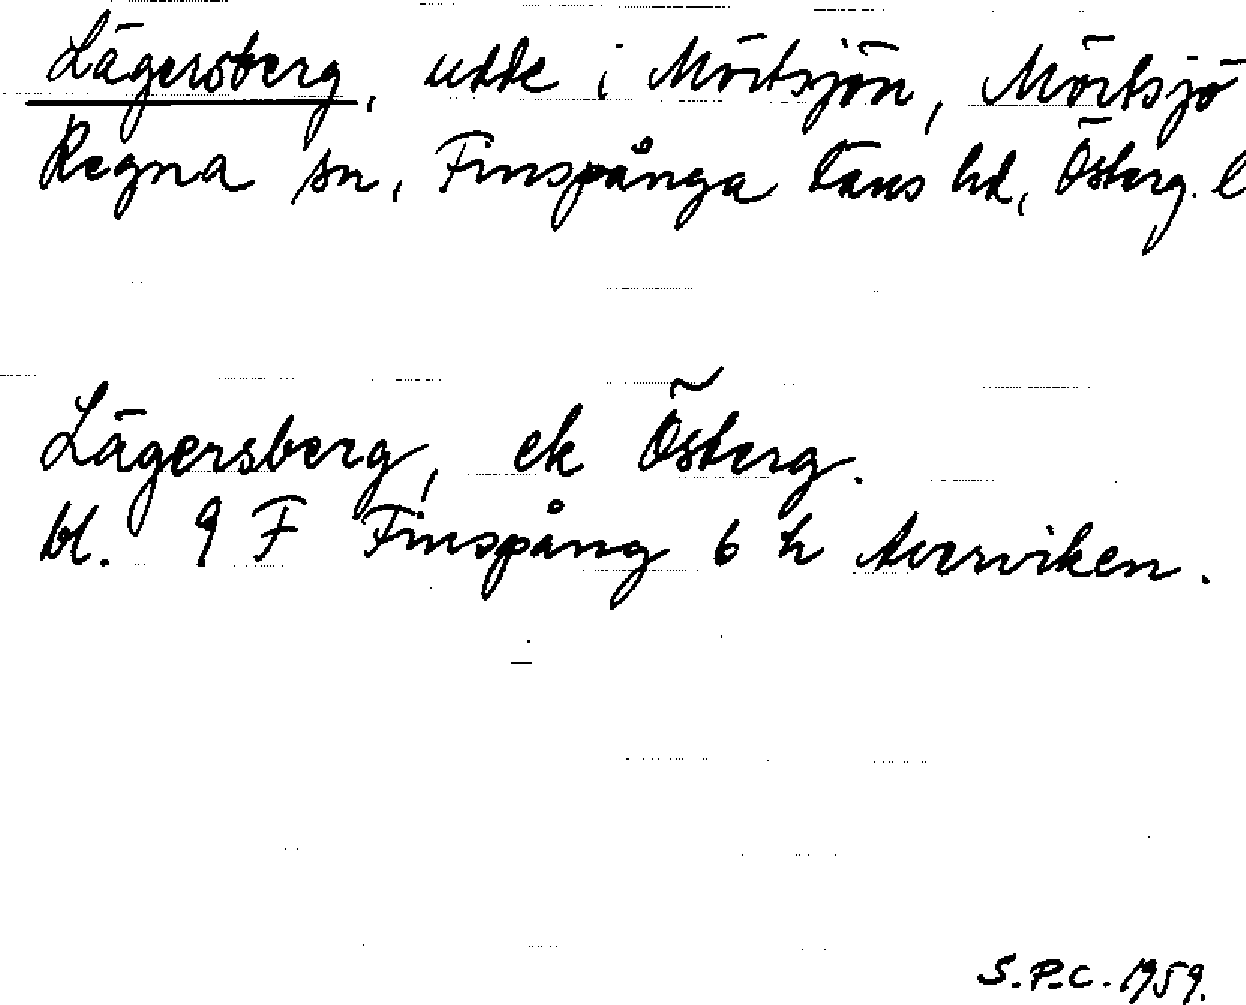 Lägersberg, udde i Mörtsjön, Mörtsjö
Regna sn, Finspånga läns hd, Österg. l
Lägersberg, ek Österg.
bl. 9 F Finspång 6 h Averviken.
S.P.C. 1959.